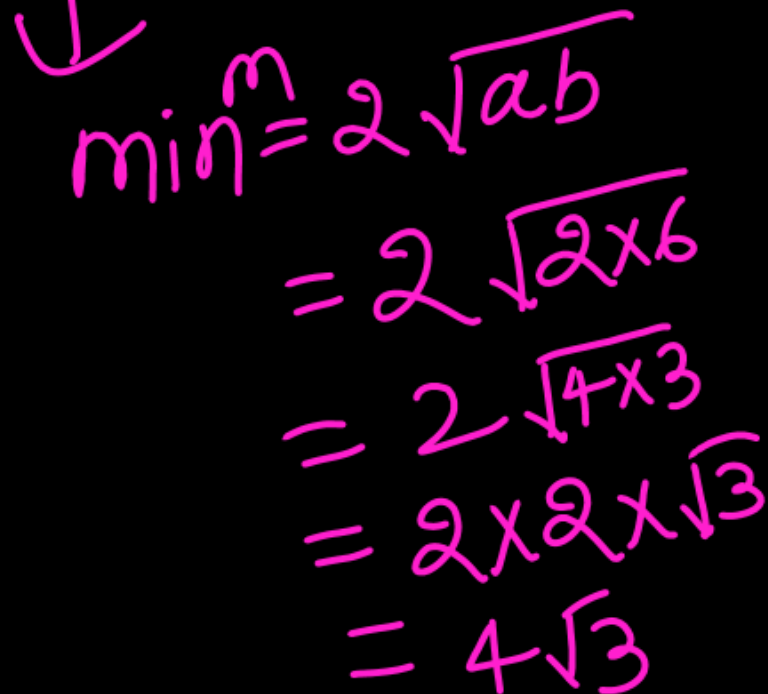 minᵐ = 2 √ab
= 2 √2×6
= 2 √4×3
= 2×2×√3
= 4√3